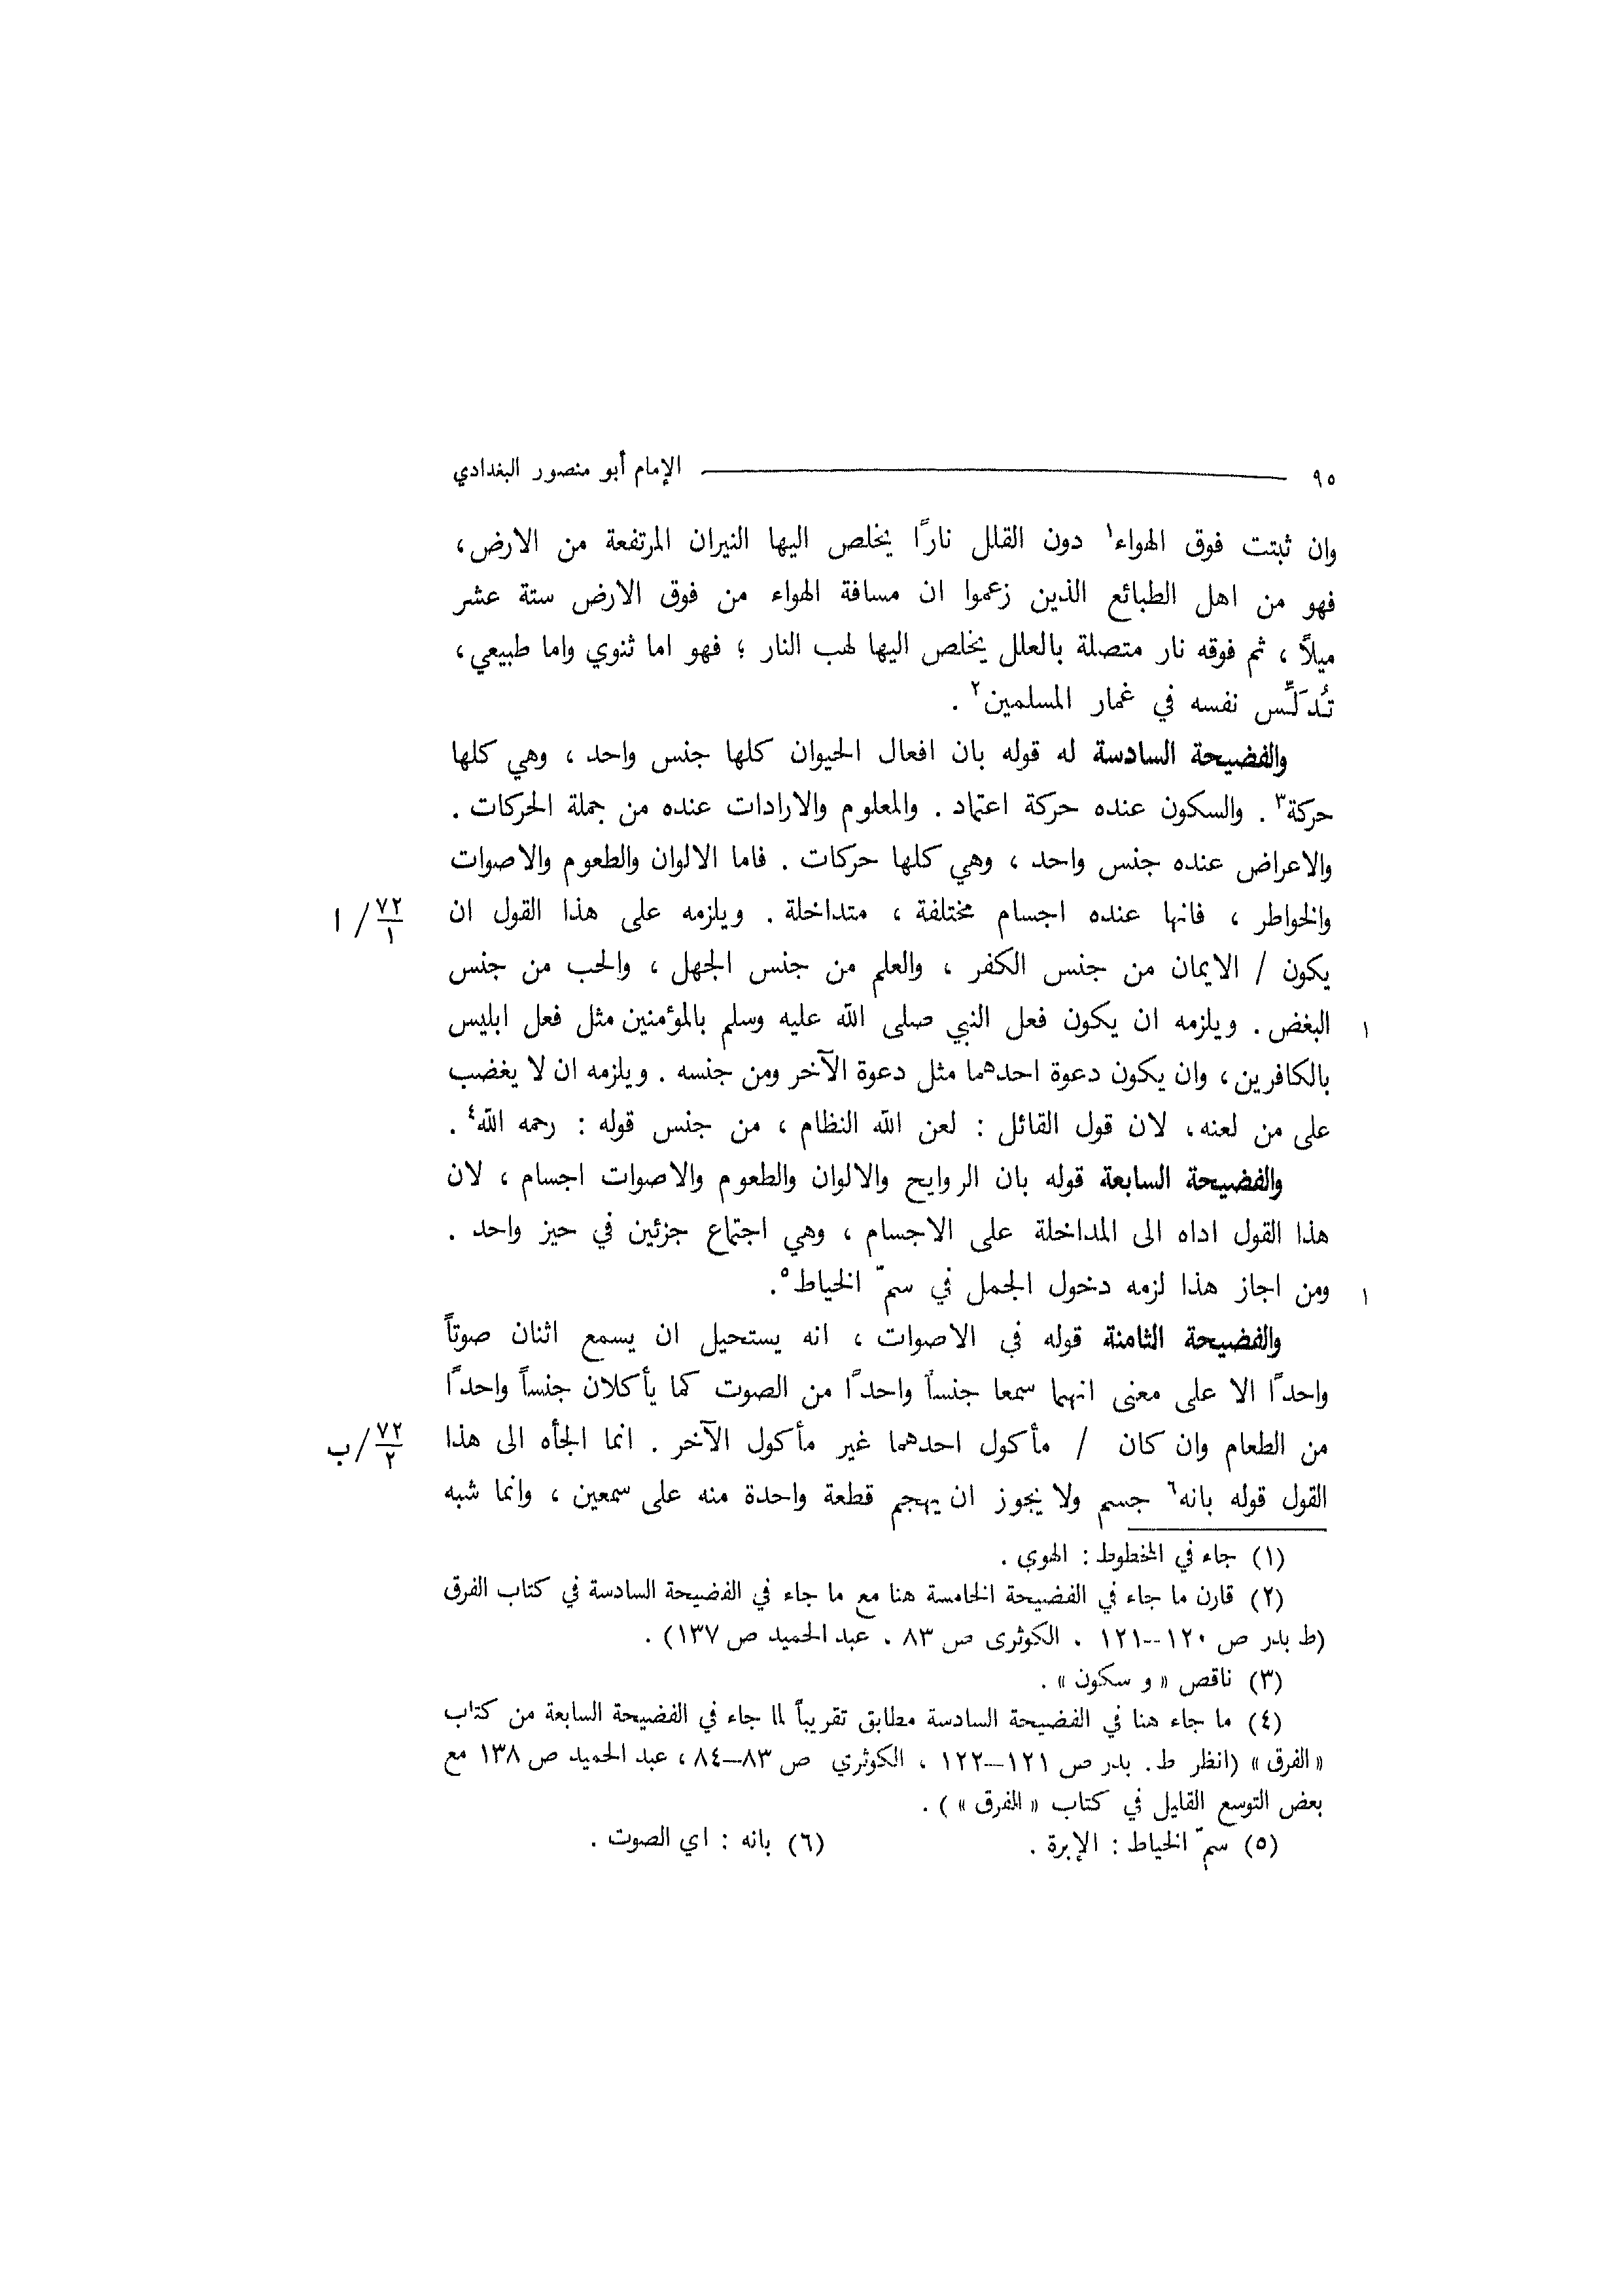 ٩٥ الإمام أبو منصور البغدادي
وان ثبتت فوق الهواء١ دون القلل نارًا يخلص اليها النيران المرتفعة من الارض،
فهو من اهل الطبائع الذين زعموا ان مسافة الهواء من فوق الارض ستة عشر
ميلاً ، ثم فوقه نار متصلة بالعلل يخلص اليها لهب النار ؛ فهو اما ثنوي واما طبيعي،
تُدَلِّس نفسه في غمار المسلمين٢ .
والفضيحة السادسة له قوله بان افعال الحيوان كلها جنس واحد ، وهي كلها
حركة٣ . والسكون عنده حركة اعتماد . والمعلوم والارادات عنده من جملة الحركات .
والاعراض عنده جنس واحد ، وهي كلها حركات . فاما الالوان والطعوم والاصوات
والخواطر ، فانها عنده اجسام مختلفة ، متداخلة . ويلزمه على هذا القول ان ٧٢/١ / ا
يكون / الايمان من جنس الكفر ، والعلم من جنس الجهل ، والحب من جنس
١ البغض . ويلزمه ان يكون فعل النبي صلى الله عليه وسلم بالمؤمنين مثل فعل ابليس
بالكافرين، وان يكون دعوة احدهما مثل دعوة الآخر ومن جنسه . ويلزمه ان لا يغضب
على من لعنه، لان قول القائل : لعن الله النظام ، من جنس قوله : رحمه الله٤ .
والفضيحة السابعة قوله بان الروايح والالوان والطعوم والاصوات اجسام ، لان
هذا القول اداه الى المداخلة على الاجسام ، وهي اجتماع جزئين في حيز واحد .
١ ومن اجاز هذا لزمه دخول الجمل في سمّ الخياط٥.
والفضيحة الثامنة قوله في الاصوات ، انه يستحيل ان يسمع اثنان صوتاً
واحدًا الا على معنى انهما سمعا جنساً واحدًا من الصوت كما يأكلان جنساً واحدًا
من الطعام وان كان / مأكول احدهما غير مأكول الآخر . انما الجأه الى هذا ٧٢/٢ / ب
القول قوله بانه٦ جسم ولا يجوز ان يهجم قطعة واحدة منه على سمعين ، وانما شبه
(١) جاء في المخطوط : الهوي .
(٢) قارن ما جاء في الفضيحة الخامسة هنا مع ما جاء في الفضيحة السادسة في كتاب الفرق
(ط بدر ص ١٢٠--١٢١ . الكوثرى ص ٨٣ . عبد الحميد ص ١٣٧) .
(٣) ناقص « و سكون » .
(٤) ما جاء هنا في الفضيحة السادسة مطابق تقريباً لما جاء في الفضيحة السابعة من كتاب
« الفرق » (انظر ط. بدر ص ١٢١—١٢٢ ، الكوثري ص ٨٣—٨٤ ، عبد الحميد ص ١٣٨ مع
بعض التوسع القليل في كتاب « الفرق » ) .
(٥) سمّ الخياط : الإبرة . (٦) بانه : اي الصوت .